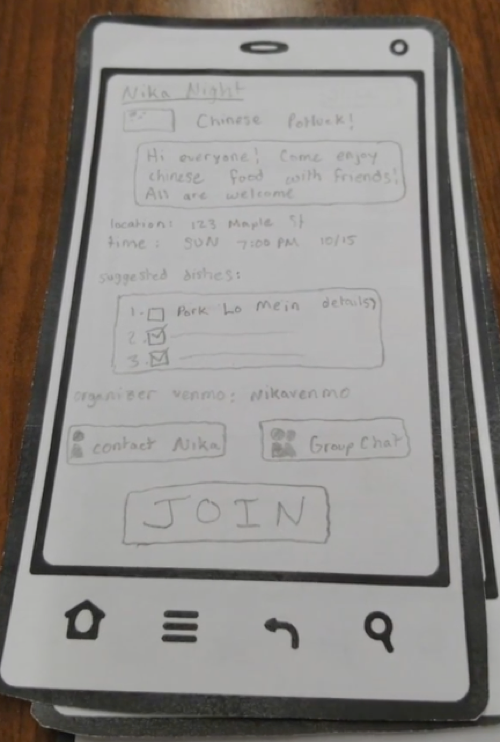 Nika Night
Chinese Potluck!
Hi everyone! Come enjoy
chinese food with friends!
All are welcome
location: 123 Maple St
time: SUN 7:00 PM 10/15
suggested dishes:
1. Pork Lo Mein details>
2.
3.
organizer venmo: Nikavenmo
contact Nika
Group Chat
JOIN